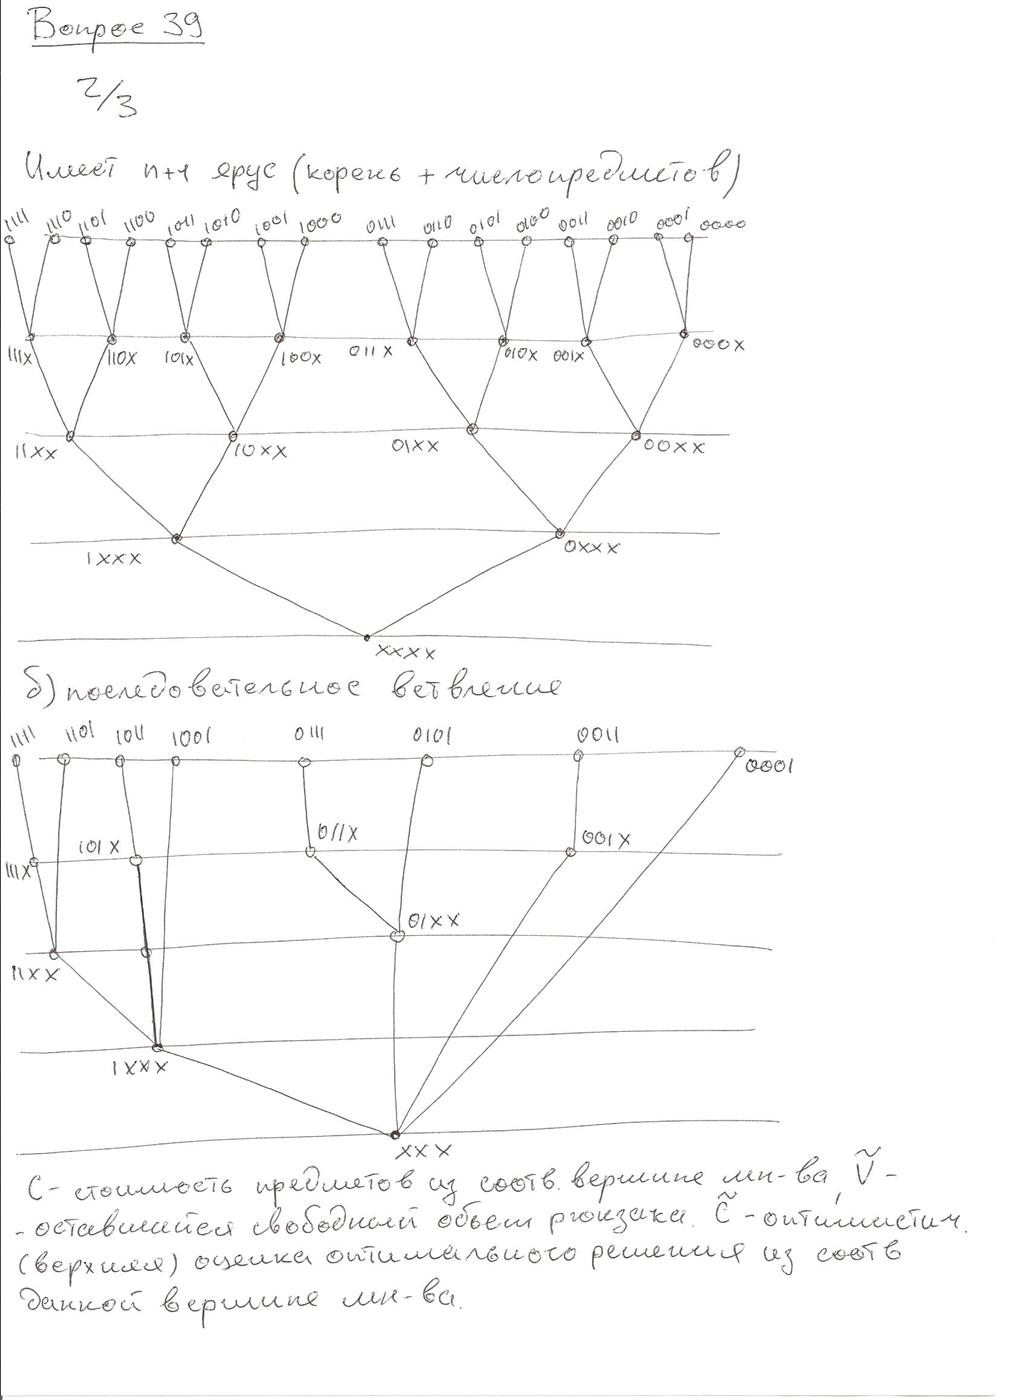 Вопрос 39
2/3
Имеет n+1 ярус (корень + число предметов)
1111 1110 1101 1100 1011 1010 1001 1000 0111 0110 0101 0100 0011 0010 0001 0000
111X 110X 101X 100X 011X 010X 001X 000X
11XX 10XX 01XX 00XX
1XXX 0XXX
XXXX
б) последовательное ветвление
1111 1101 1011 1001 0111 0101 0011 0001
111X 101X 011X 001X
11XX 01XX
1XXX
XXX
C - стоимость предметов из соотв. вершине мн-ва, Ṽ -
- оставшийся свободный объем рюкзака. C̃ - оптимистич.
(верхняя) оценка оптимального решения из соотв
данной вершине мн-ва.